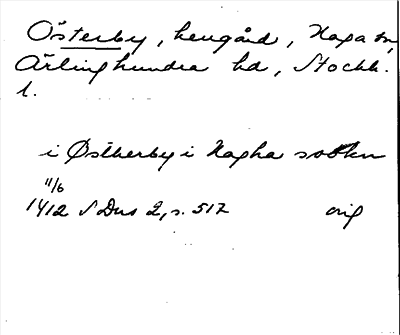 Österby, hemgård, Haga sn,
Ärlinghundra hd, Stockh.
l.
i Østherby i Hagha sokn
11/6
1412 SDns 2, s. 517 orig